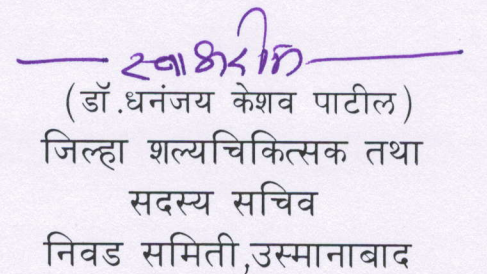 स्वाक्षरीत
(डॉ.धनंजय केशव पाटील)
जिल्हा शल्यचिकित्सक तथा
सदस्य सचिव
निवड समिती,उस्मानाबाद